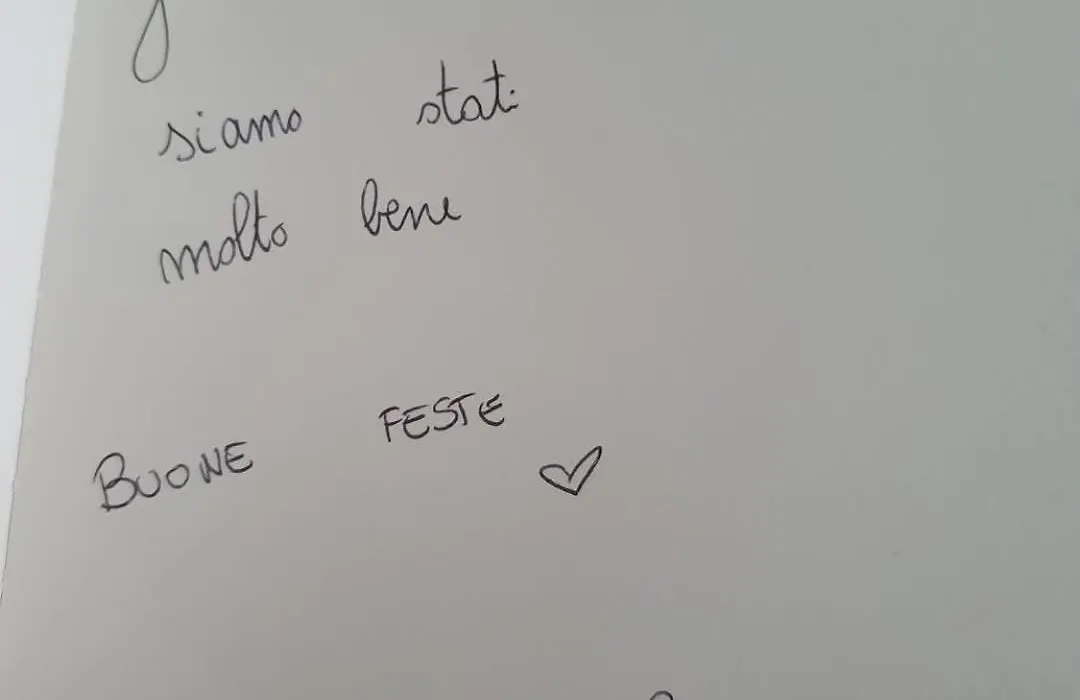 siamo stati
molto bene
BUONE FESTE